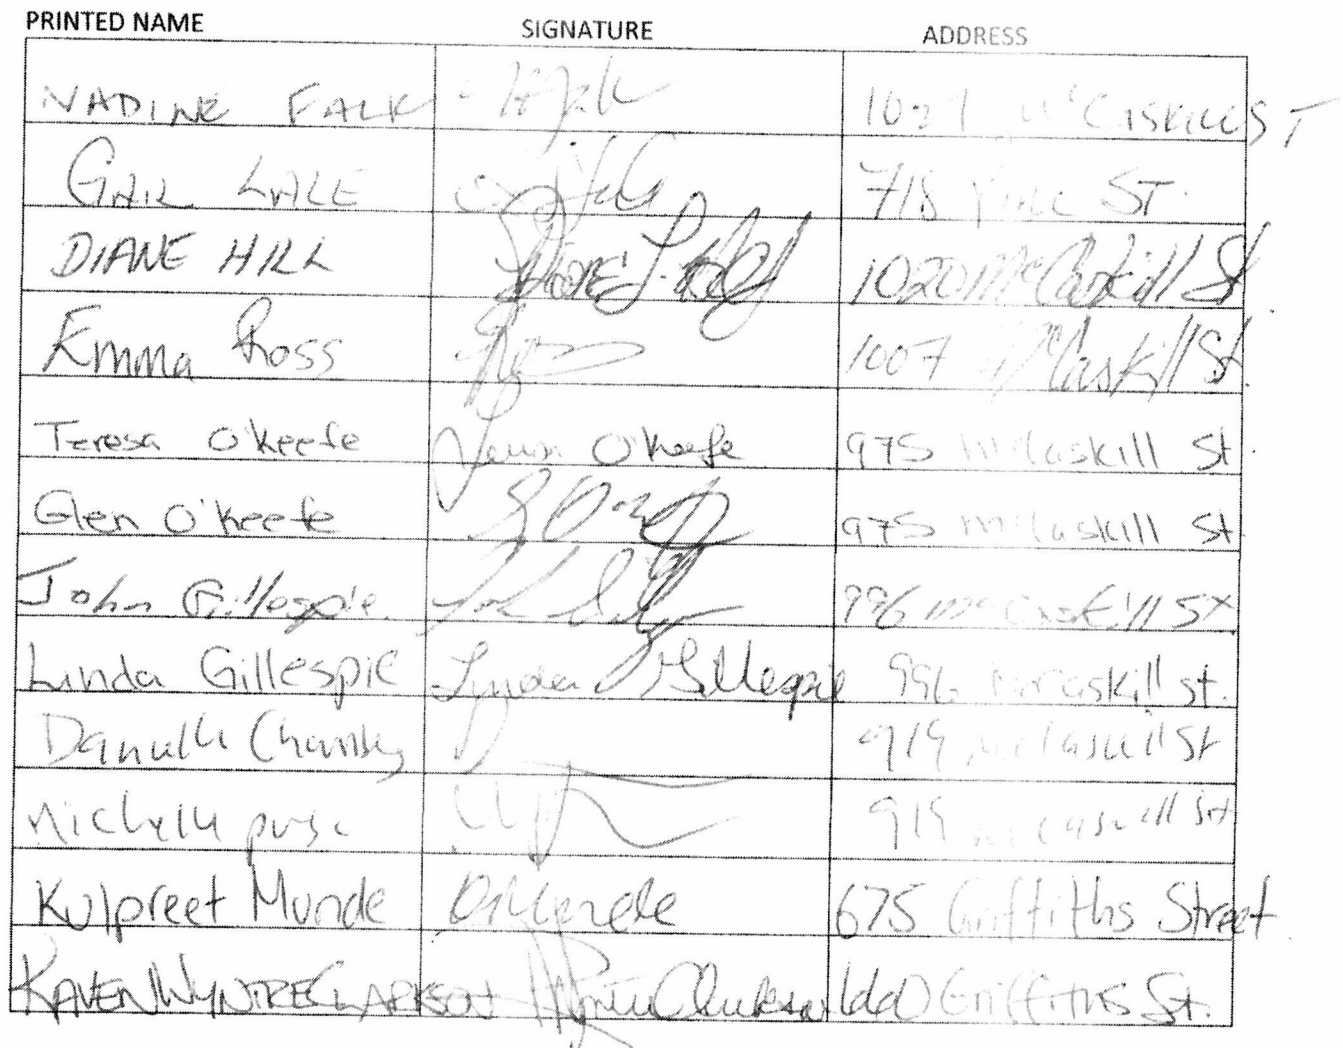 PRINTED NAME SIGNATURE ADDRESS
NADINE FALK
GAIL LALE 718 ST.
DIANE HILL Diane 1020 McCaskill St
Emma Ross 1007 McCaskill St.
Teresa O'Keefe Teresa O'Keefe 975 McCaskill St.
Glen O'Keefe 975 McCaskill St
John Gillespie 996 McCaskill St
Linda Gillespie Lynda Gillespie 996 McCaskill st.
919 McCaskill St
919 McCaskill St
Kulpreet Munde Munde 675 Griffiths Street
RAVEN WYNTRE CLARKSON Griffiths St.